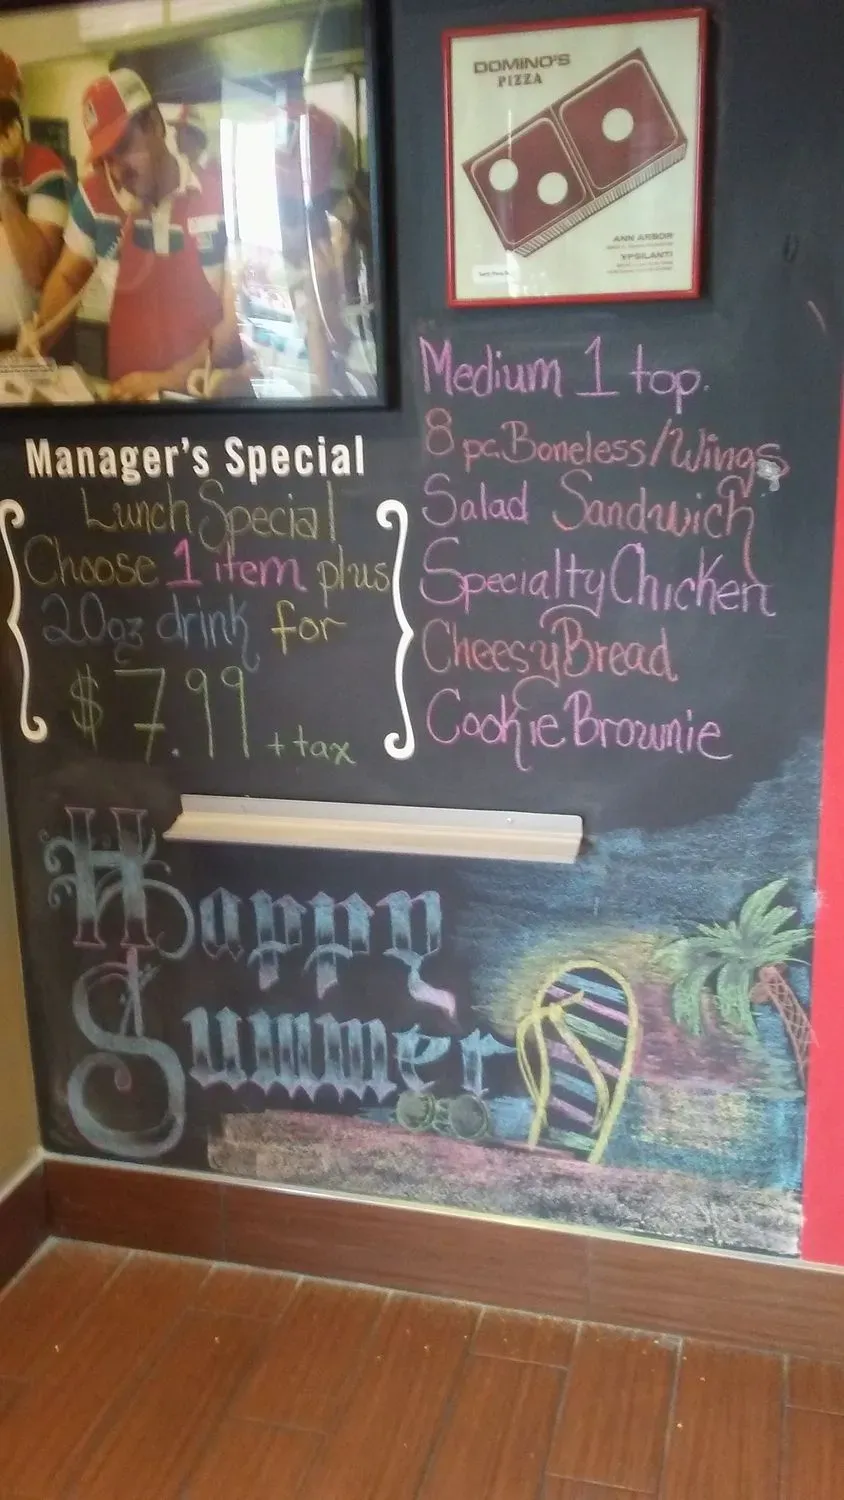 DOMINO'S
PIZZA
ANN ARBOR
YPSILANTI
Manager's Special
Lunch Special
Choose 1 item plus
20oz drink for
$7.99 + tax
Medium 1 top.
8 pc. Boneless/Wings
Salad Sandwich
Specialty Chicken
Cheesy Bread
Cookie Brownie
Happy
Summer